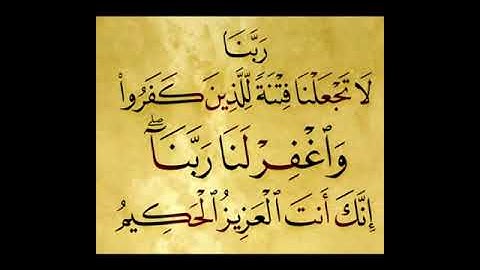 رَبَّنَا
لَا تَجْعَلْنَا فِتْنَةً لِّلَّذِينَ كَفَرُوا۟
وَٱغْفِرْ لَنَا رَبَّنَآ ۖ
إِنَّكَ أَنتَ ٱلْعَزِيزُ ٱلْحَكِيمُ